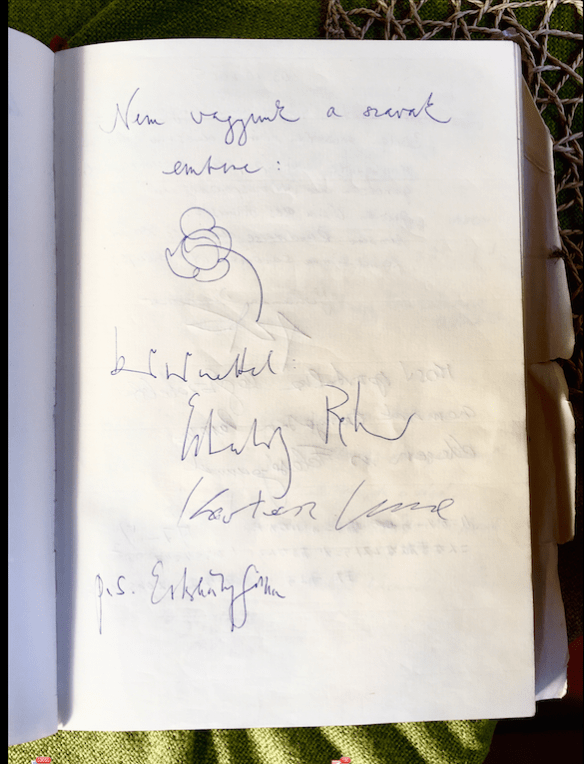 Nem vagyunk a szavak
embere:
köszönettel:
Esterházy Péter
Kertész Imre
p.s. Esterházy